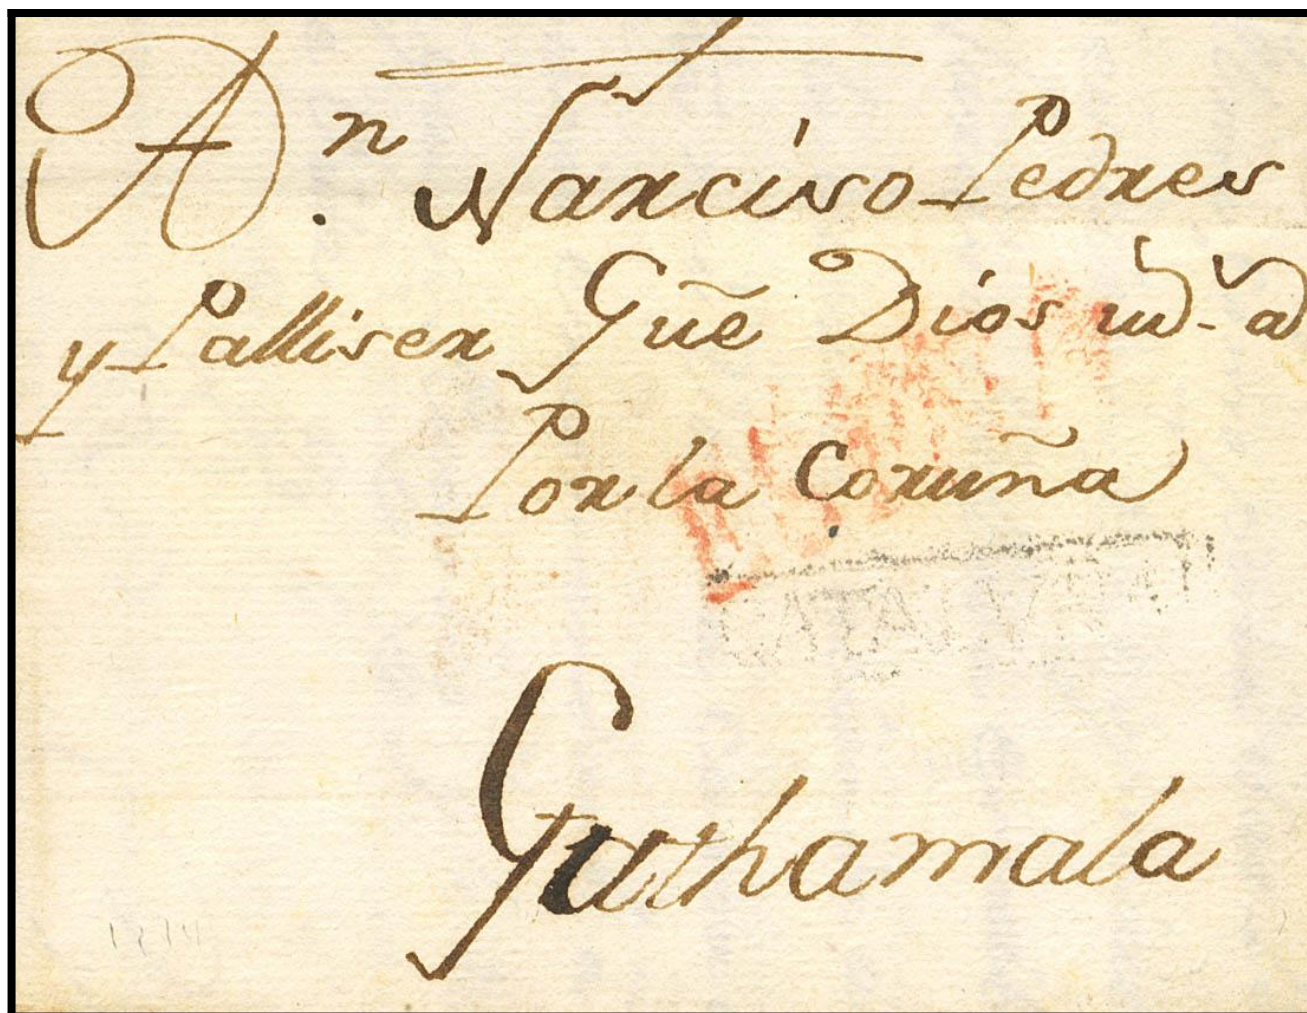 A Dn. Narciso Pedres
y Palliser Gue Dios
Por la Coruña
CATALVÑA
Guathamala